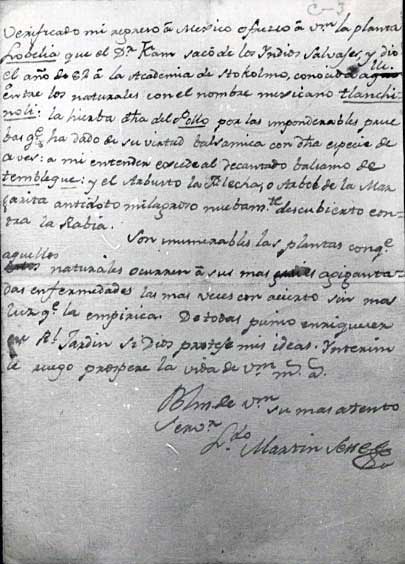 C-3
Verificado mi regreso â Mexico ofresco â vm la planta
Lobelia que el Dr Kam sacó de los Yndios Salvages, y dio
el año de 52 â la Academia de Stokolmo, conocida alli
entre los naturales con el nombre mexicano tlanchi-
noli: la hierba dha del Pollo por las imponderables prue
bas qe ha dado de su virtud balsamica con dha especie de
aves: a mi entender excede al decantado balsamo de
tembleque: y el Arbusto la Flecha, o Arbol de la Mar
garita antidoto milagroso nuebamte descubierto con-
tra la Rabia.
Son inumerables las plantas conqe
aquellos
naturales ocurren â sus mas agiganta-
das enfermedades las mas veces con acierto sin mas
luz qe la empirica. De todas pienso enriquecer
Rl Jardin si Dios protege mis ideas. Ynterin
le ruego prospere la vida de vm m. a.
Blm. de vm
su mas atento
Servor
Ldo Martin Sesse